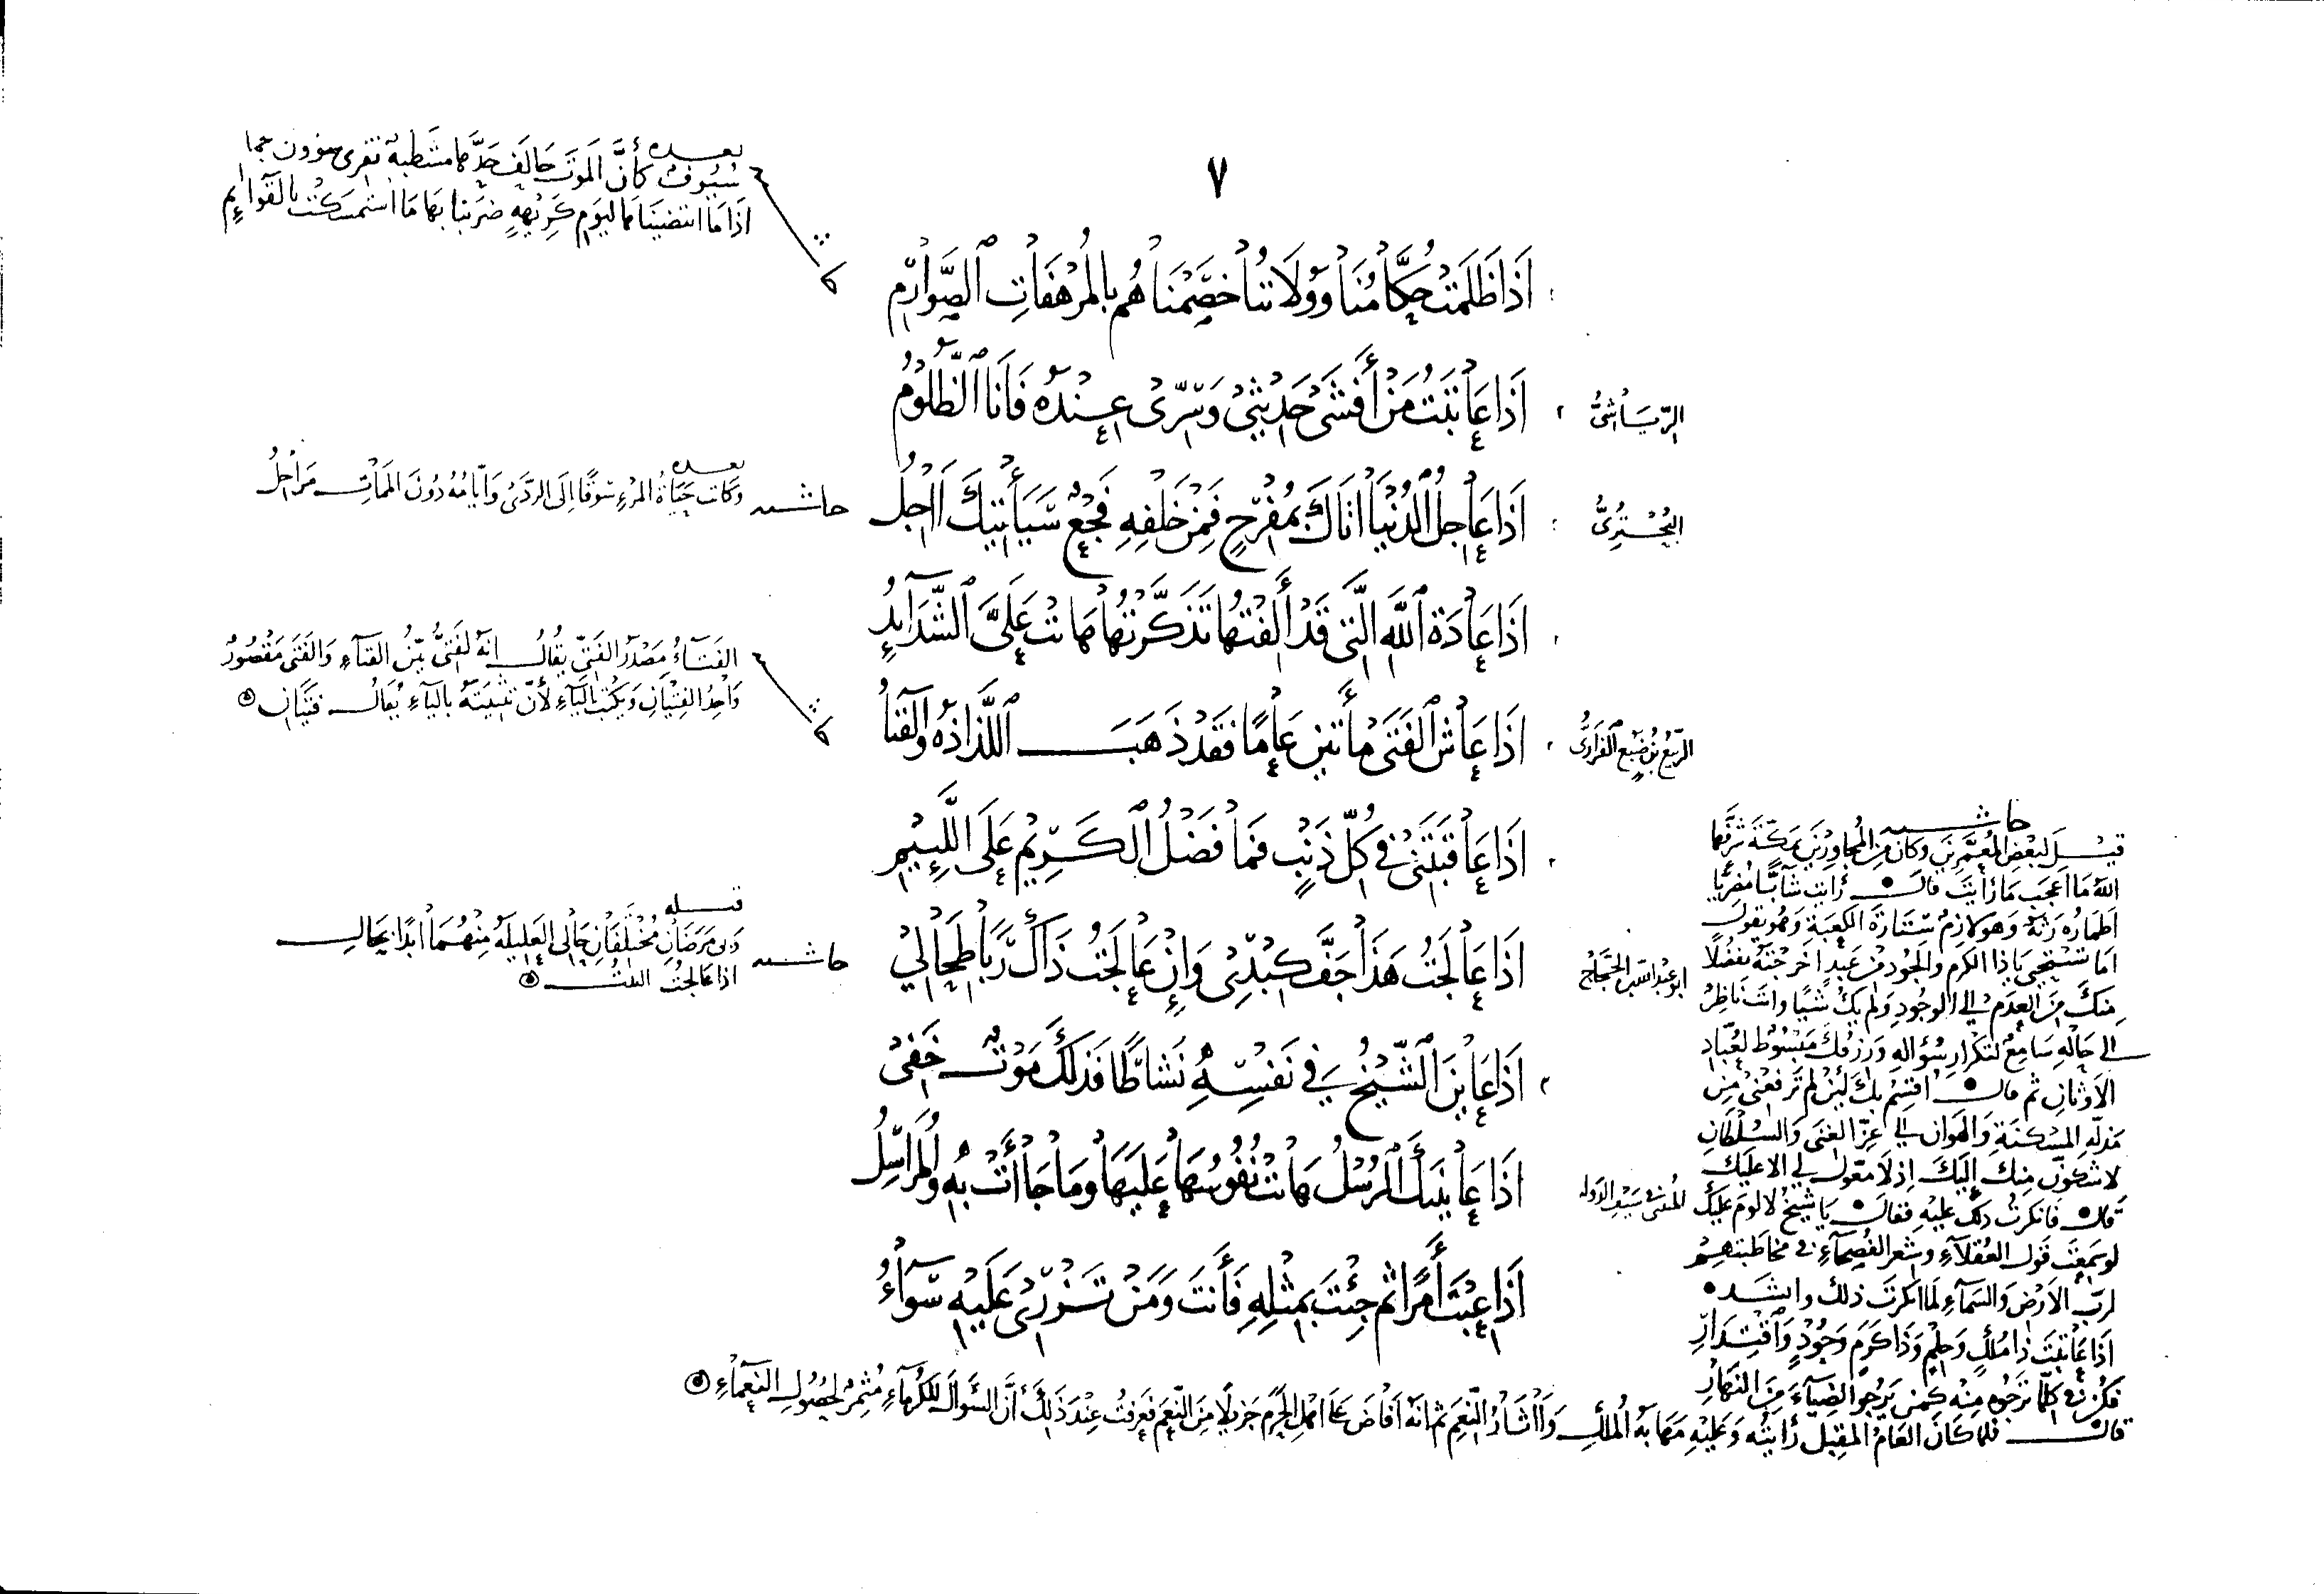 ٧
بعده
سُيُوفٌ كَأَنَّ المَوتَ حَالَفَ حَدَّهَا مشَطَّبَةٌ تفرى شؤون
اذَا مَا انتضينَاهَا ليَومِ كَرِيْهَةٍ ضرَبنا بهَا مَا استمسَكَتْ بالقَوَائِمِ
حاشية
اَذَا ظَلَمَتْ حُكَّامُنَا وَوُلَاتُنَا خَصَمْنَاهُم بِالمُرْهَفَاتِ الصَّوَارِمِ
الرِّيَاشِىُّ
اذَا عَاتَبْتُ مَنْ أَفْشَى حَدِيْثِي وَسِرِّى عِنْدَهُ فَأَنَا الظَّلُوْمُ
البُحْتُرِىُّ
اذَا عَاجِلُ الدُّنْيَا اَتَاكَ بمُفْرِحٍ فَمِنْ خَلْفِهِ فَجْعٌ سَيَأْتِيْكَ اٰجِلُ
حاشية
بعده
وَكَانت حَيَاةُ المَرْءِ سَوقًا اِلَى الرَّدَى وَأيَّامُهُ دُونَ المَمَاتِ مَرَاحِلُ
اذَا عَادَةُ اللهِ الَّتِى قَدْ أَلِفْتُهَا تَذَكَّرتُهَا هَانَتْ عَلَىَّ الشَّدَايِدِ
الرَّبيْعُ بْنُ ضَبُعِ الفَزَارىُّ
اذَا عَاشَ الفَتَى مأتَيْنِ عَامًا فَقَدْ ذَهَبَ اللَّذَاذَةُ وَالفَتَآءُ
حاشية
الفَتَآءُ مَصْدَرُ الفَتِىِّ يقُالُ انهُ لَفَتِىٌّ بَيِّنُ الفتآءِ وَالفَتَى مَقْصُورٌ
وَاحِدُ الفِتْيَانِ وَيكتَبُ باليَآءِ لأَنَّ تَثنِيَتَهُ باليآءِ يُقَالُ فَتَيَانِ
اذَا عَاقَبْتَنِى فِي كُلِّ ذَنْبٍ فَمَا فَضْلُ الكَرِيْمِ عَلَى اللَّئِيْمِ
ابو عبد الله بن الحَجَّاج
اذَا عَالَجْتُ هَذَا جَفَّ كَبْدِي وَإِنْ عَالَجْتُ ذَاكَ رَبَا طِحَالِي
حاشية
قبله
وَبي مَرَضَانِ مُخْتَلِفَانِ حَالِى العَلِيلَةُ مِنْهُمَا ابدًا بحَالِ
اذا عَالجتُ البيتُ
اذَا عَايَنَ الشَّيْخُ فِي نَفْسِهِ نَشَاطًا فَذَلِكَ مَوْتٌ خَفِىْ
اذَا عَايَنَتْكَ الرُّسْلُ هَانَتْ نُفُوسُهَا عَلَيْهَا وَمَا جَاأَتْ بِهِ وَالمَرَاسِلُ
اذَا عِبْتَ أَمْرًا ثُم جِئْتَ بمِثْلِهِ فَأَنتَ وَمَنْ تَزْرِى عَلَيْهِ سَوَآءُ
حاشية
قيْلَ لبَعْضِ المُعَمَّرِيْنَ وَكَانَ مِنَ المُجَاوِرِيْنَ بمَكَّةَ شَرَّفَهَا
اللهُ مَا اعْجَب مَا رَأيتَ قَالَ رَأيت شَآبًّا
اَطمَارُهُ رَثةٌ وَهوَ لَازِمٌ سِتَارَةَ الكَعْبَةِ وَهُوَ يقول
امَا تستَحْيى يَاذَا الكرم والجُودِ مِنْ عَبْدٍ اخرَجْتَهُ بفَضْلًا
مِنكَ مِنَ العَدَمِ الي الوجُودِ وَلَم يكُ شَيْئًا وانتَ نَاظِرٌ
الي حَالِهِ سَامِعٌ لتكرَارِ سُؤالِهِ وَرِزقُكَ مَبْسُوطٌ لعُبَّادِ
الاَوثَانِ ثم قال اُقسِمُ بكَ لئِنْ لَم تَرفعْنِى مِنِ
مَذلَّةِ المَسْكنَةِ وَالهَوَانِ الي عِزِّ الغنَى وَالسُلْطَانِ
لاشكوَنَّ مِنكَ إلَيكَ اِذْ لَا مُعَوَّل لي الا عَليْكَ
المُتَنَبِّى سَيْف الدَّولَةِ
قالَ فَانكرتُ ذلك عَليْهِ فَقَالَ يَا شَيْخُ لا لومَ عَليكَ
لو سَمِعْتَ قَول العُقَلآءِ وشعر الفُصَحَآءِ في مخَاطبَتِهِمْ
لربِّ الاَرْضِ وَالسَّمآءِ لَمَا انكرتَ ذلك وانشَدَ
اذَا عَاتبتَ ذَا مُلكٍ وَحِلْمٍ وَذَا كَرَمٍ وَجُوْدٍ وَاقْتِدَارِ
فَكُنْ في كلّ ما تَرجُوه مِنْهُ كمَن يَرْجُو الضِيَآءَ مِنَ النَّهَارِ
قال فلَمَّا كَانَ العَامُ المُقبِل رَأيْتُه وَعَليْهِ مَهَابَةُ المُلكِ وَاٰثَارُ النِّعَمِ ثم انهُ اَفَاضَ عَلَى اهلِ الحَرَمِ جَزِيلًا مِنَ النِّعَمِ فعَرفتُ عِنْدَ ذَلِكَ أَنَّ السُّوَالَ للكُرَمَآءِ مُثمِرٌ لحُصُولِ النعمآءِ